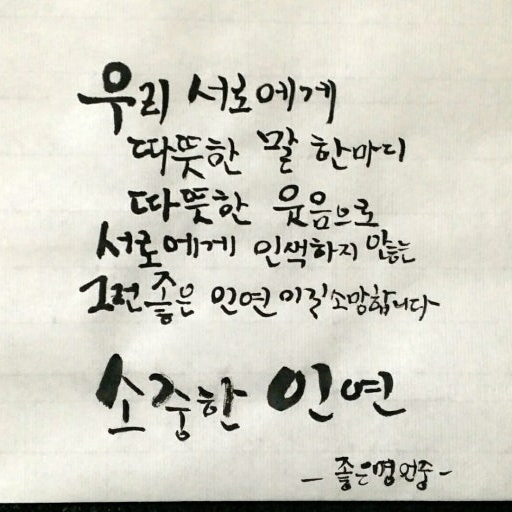 우리 서로에게
따뜻한 말 한마디
따뜻한 웃음으로
서로에게 인색하지 않는
그런 좋은 인연이길 소망합니다
소중한 인연
- 좋은명언중 -